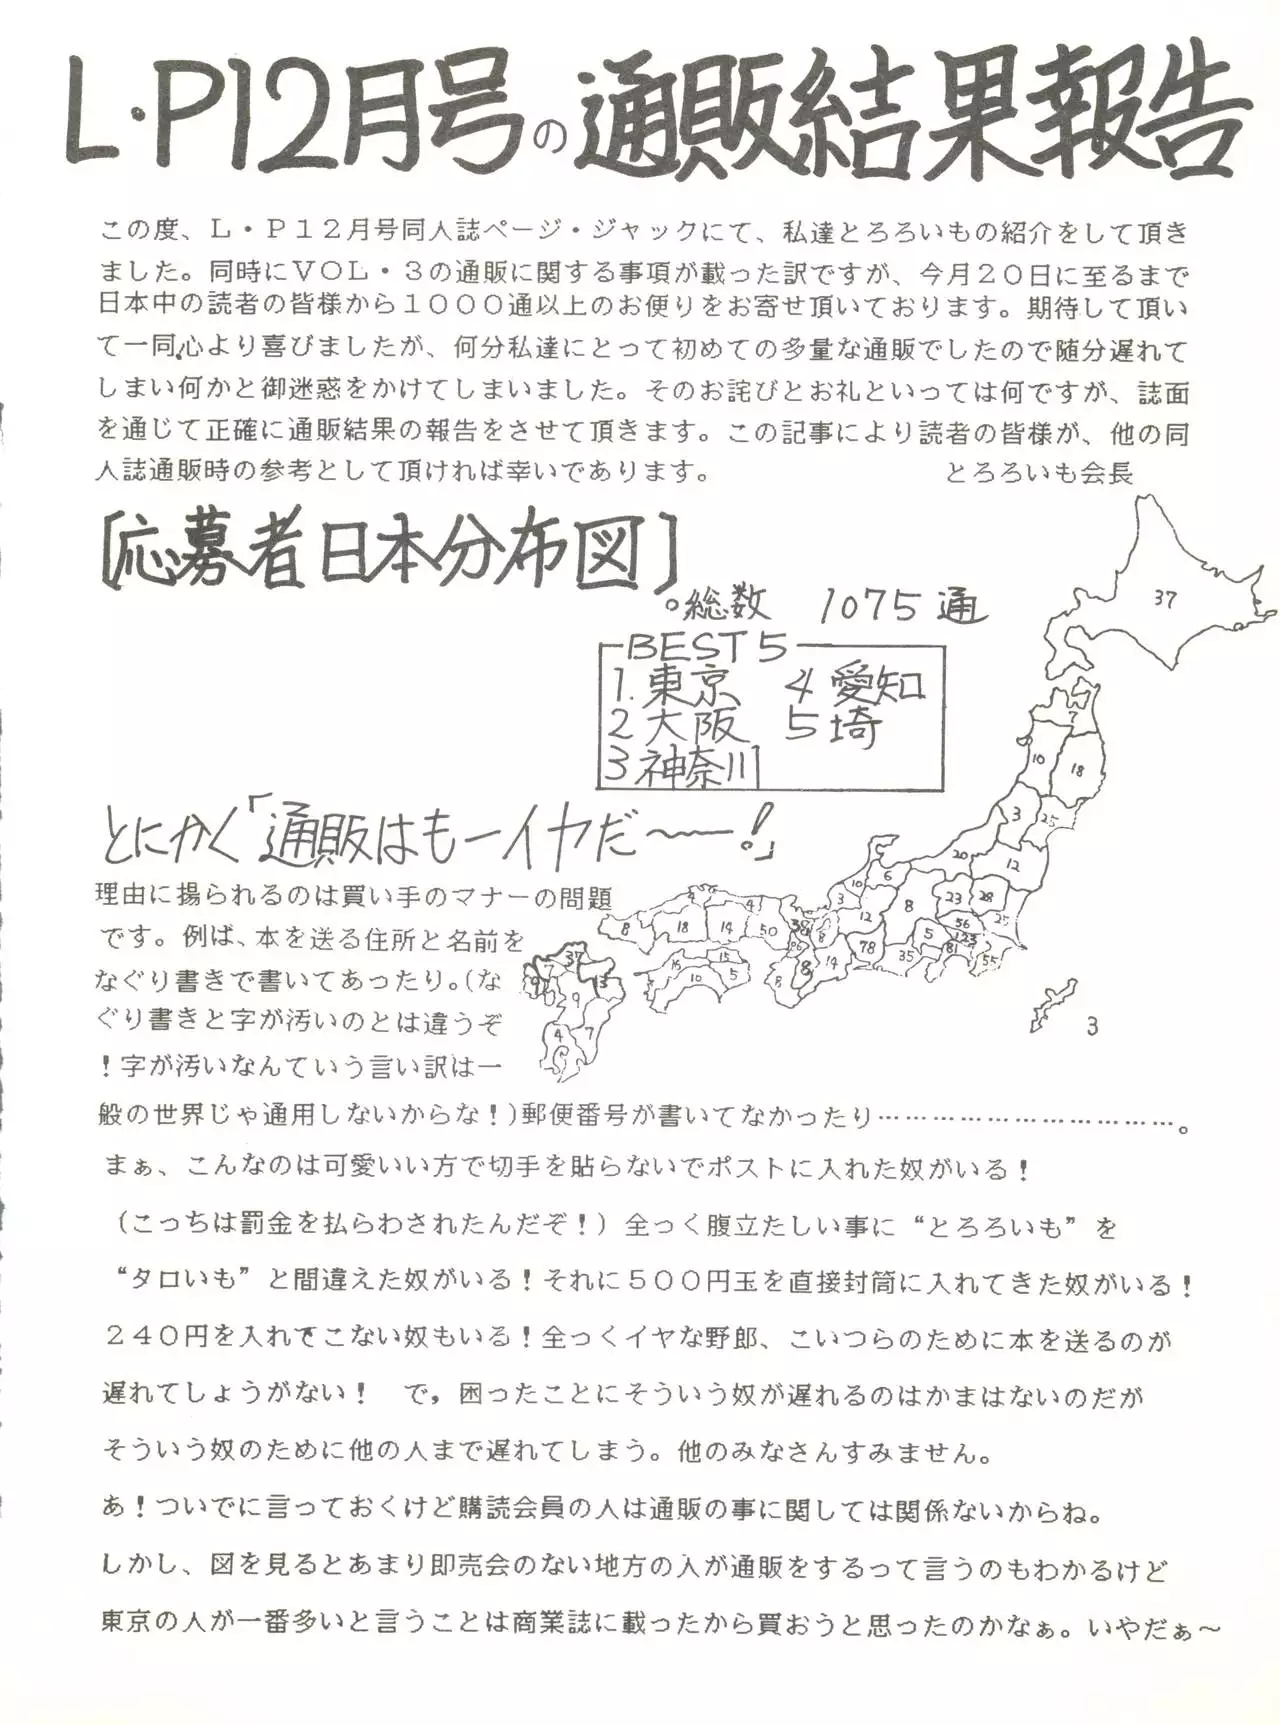 L・P12月号の通販結果報告
この度、L・P12月号同人誌ページ・ジャックにて、私達とろろいもの紹介をして頂き
ました。同時にVOL・3の通販に関する事項が載った訳ですが、今月20日に至るまで
日本中の読者の皆様から1000通以上のお便りをお寄せ頂いております。期待して頂い
て一同心より喜びましたが、何分私達にとって初めての多量な通販でしたので随分遅れて
しまい何かと御迷惑をかけてしまいました。そのお詫びとお礼といっては何ですが、誌面
を通じて正確に通販結果の報告をさせて頂きます。この記事により読者の皆様が、他の同
人誌通販時の参考として頂ければ幸いであります。 とろろいも会長
[応募者日本分布図]
○総数 1075通
BEST5
1.東京 4 愛知
2 大阪 5 埼
3 神奈川
37
7
10
18
3
25
20
12
6
10
3
8
23
28
25
56
123
5
81
55
35
12
78
8
14
38
8
8
50
4
14
4
18
8
15
5
10
37
7
9
13
9
4
7
3
とにかく「通販はもーイヤだ〜!」
理由に揚られるのは買い手のマナーの問題
です。例ば、本を送る住所と名前を
なぐり書きで書いてあったり。(な
ぐり書きと字が汚いのとは違うぞ
!字が汚いなんていう言い訳は一
般の世界じゃ通用しないからな!)郵便番号が書いてなかったり……………………………。
まぁ、こんなのは可愛いい方で切手を貼らないでポストに入れた奴がいる!
(こっちは罰金を払らわされたんだぞ!)全っく腹立たしい事に“とろろいも”を
“タロいも”と間違えた奴がいる!それに500円玉を直接封筒に入れてきた奴がいる!
240円を入れてこない奴もいる!全っくイヤな野郎、こいつらのために本を送るのが
遅れてしょうがない! で,困ったことにそういう奴が遅れるのはかまはないのだが
そういう奴のために他の人まで遅れてしまう。他のみなさんすみません。
あ!ついでに言っておくけど購読会員の人は通販の事に関しては関係ないからね。
しかし、図を見るとあまり即売会のない地方の人が通販をするって言うのもわかるけど
東京の人が一番多いと言うことは商業誌に載ったから買おうと思ったのかなぁ。いやだぁ〜